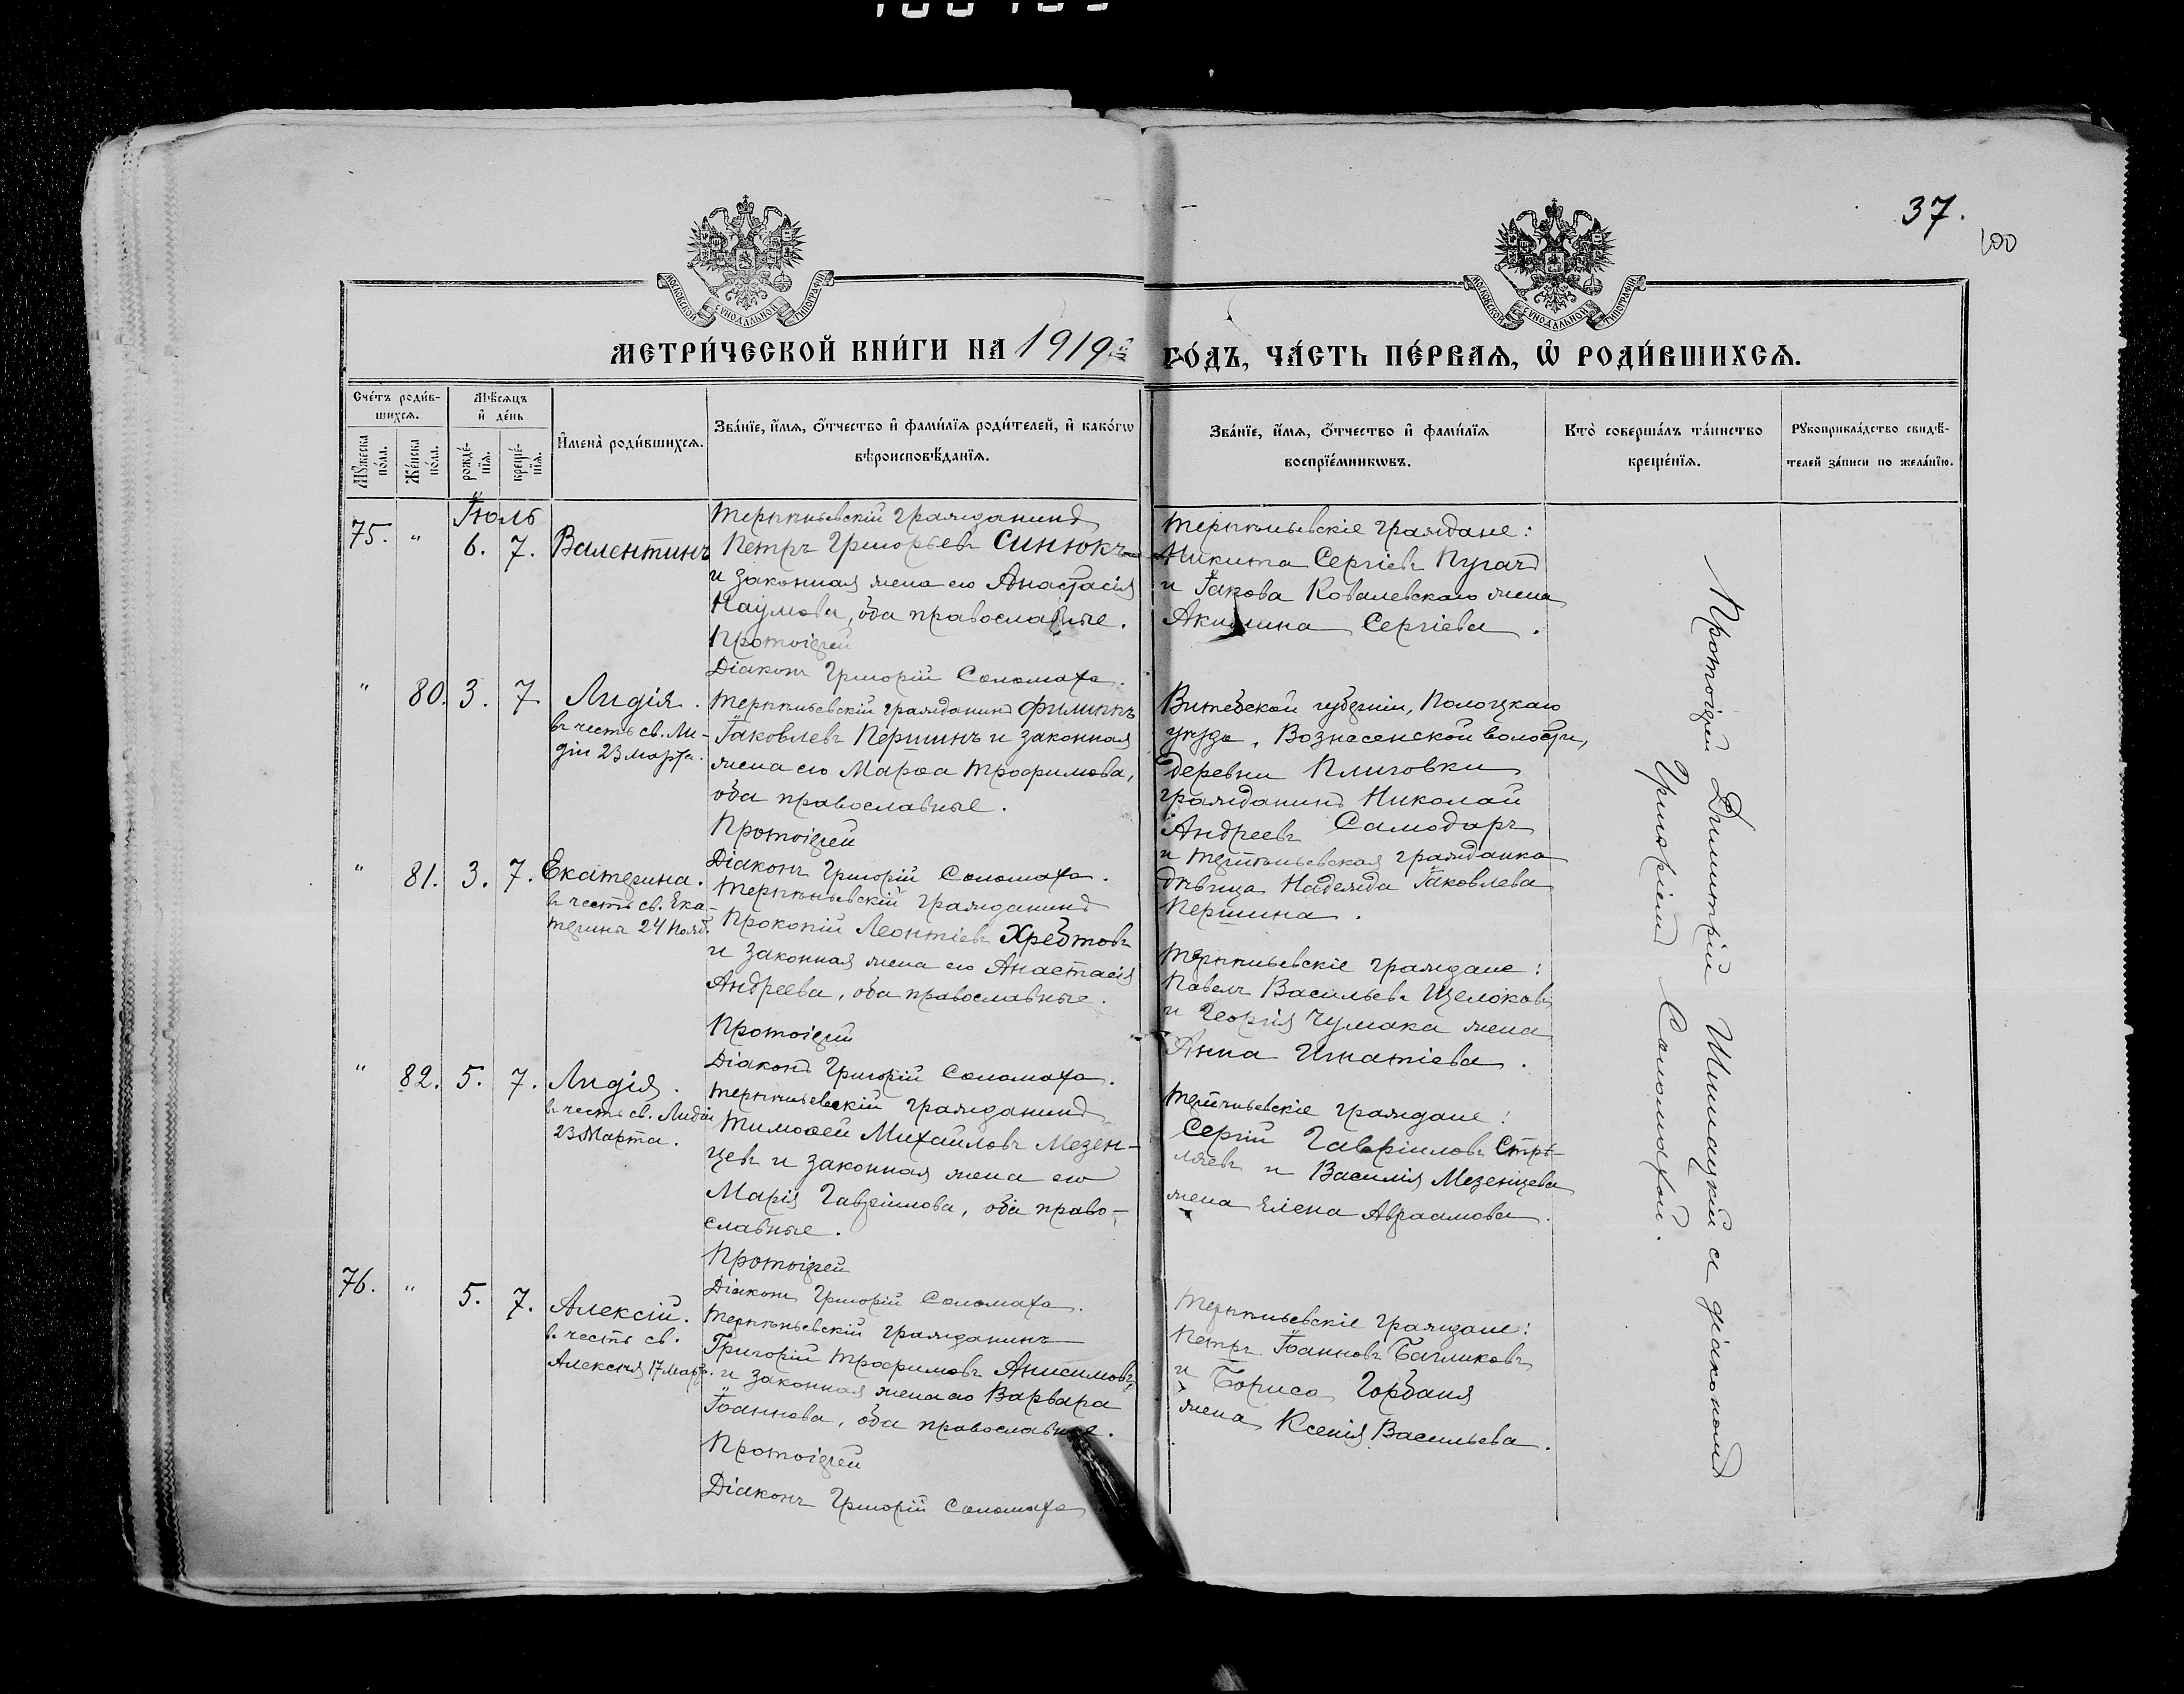 37.
100
МЕТРИ́ЧЕСКОЙ КНИ́ГИ НА 1919й ГО́ДЪ, ЧА́СТЬ ПЕ́РВАѦ, Ѽ РОДИ́ВШИХСѦ.
Сче́тъ роди́в-
шихсѧ.
Мꙋ́жеска по́ла.
Же́нска по́ла.
Мѣ́сяцъ
и҆ де́нь
рожде́-
нїѧ.
креще́-
нїѧ.
И҆мена̀ роди́вшихсѧ.
Зва́нїе, и҆́мѧ, ѻ҆́тчество и҆ фами́лїѧ роди́телей, и҆ како́гѡ
вѣроисповѣ́данїѧ.
Зва́нїе, и҆́мѧ, ѻ҆́тчество и҆ фами́лїѧ
воспрїе́мникѡвъ.
Кто̀ соверша́лъ та́инство
креще́нїѧ.
Рꙋкоприкла́дство свидѣ́-
телей за́писи по жела́нїю.
Іюль
75. " 6. 7. Валентинъ
Терпѣньевскій гражданинъ
Петръ Григорьевъ Синюкъ
и законная жена его Анастасія
Наумова, оба православные.
Протоіерей
Діаконъ Григорій Соломаха.
Терпѣньевскіе граждане:
Никита Сергіевъ Пугачъ
и Іакова Ковалевскаго жена
Акилина Сергіева.
" 80. 3. 7 Лидія.
въ честь св. Ли-
діи 23 марта.
Терпѣньевскій гражданинъ Филиппъ
Іаковлевъ Першинъ и законная
жена его Марѳа Трофимова,
оба православные.
Протоіерей
Діаконъ Григорій Соломаха.
Витебской губерніи, Полоцкаго
уѣзда, Вознесенской волости,
деревни Плиговки
гражданинъ Николай
Андреевъ Самодаръ
и терпѣньевская гражданка
дѣвица Надежда Іаковлева
Першина.
" 81. 3. 7. Екатерина.
въ честь св. Ека-
терины 24 Нояб.
Терпѣньевскій гражданинъ
Прокопій Леонтіевъ Хребтовъ
и законная жена его Анастасія
Андреева, оба православные.
Протоіерей
Діаконъ Григорій Соломаха.
Терпѣньевскіе граждане:
Павелъ Васильевъ Щелоковъ
и Георгія Чумака жена
Анна Игнатіева.
" 82. 5. 7. Лидія.
въ честь св. Лидіи
23 Марта.
Терпѣньевскій гражданинъ
Тимоѳей Михайловъ Мезен-
цевъ и законная жена его
Марія Гавріилова, оба право-
славные.
Протоіерей
Діаконъ Григорій Соломаха.
Терпѣньевскіе граждане:
Сергій Гавріиловъ Стрѣ-
ляевъ и Василія Мезенцева
жена Елена Авраамова.
76. " 5. 7. Алексій.
въ честь св.
Алексія 17 март.
Терпѣньевскій гражданинъ
Григорій Трофимовъ Анисимовъ
и законная жена его Варвара
Іоаннова, оба православные.
Протоіерей
Діаконъ Григорій Соломаха
Терпѣньевскіе граждане:
Петръ Іоанновъ Багликовъ
и Бориса Горбаня
жена Ксенія Васильева.
Протоіерей Димитрій Шишацкій съ діакономъ
Григоріемъ Соломахой.